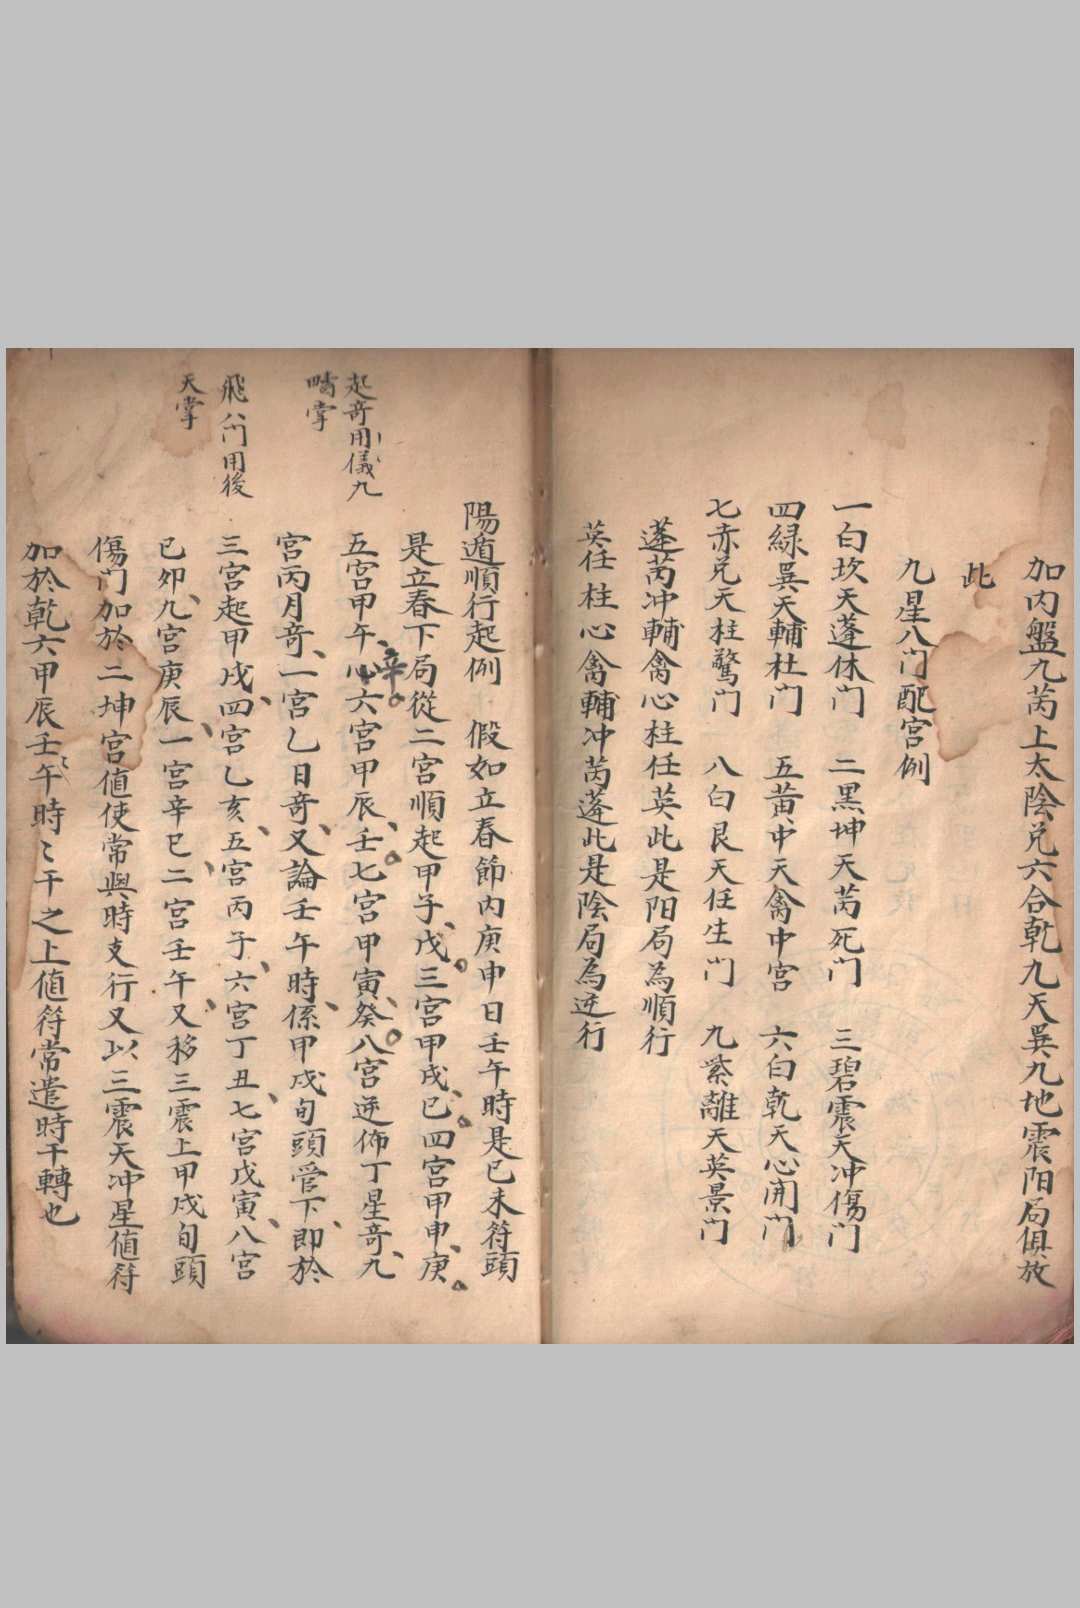 加内盤九芮上太陰兑六合乹九天巽九地震阳局俱放
此
九星八门配宫例
一白坎天蓬休门　二黒坤天芮死门　三碧震天冲傷门
四緑巽天輔杜门　五黄中天禽中宫　六白乾天心闲门
七赤兑天柱驚门　八白艮天任生门　九紫離天英景门
蓬芮冲輔禽心柱任英此是阳局為順行
英任柱心禽輔冲芮蓬此是陰局為逆行
陽遁順行起例　假如立春節内庚申日壬午時是已未符頭
是立春下局從二宫順起甲子戊三宫甲戌已四宫甲申庚
五宫甲午辛六宫甲辰壬七宫甲寅癸八宫逆佈丁星奇九
宫丙月奇一宫乙日奇又論壬午時係甲戌旬頭管下即於
三宫起甲戌四宫乙亥五宫丙子六宫丁丑七宫戊寅八宫
已卯九宫庚辰一宫辛巳二宫壬午又移三震上甲戌旬頭
傷门加於二坤宫値使常與時支行又以三震天冲星値符
加於乾六甲辰壬午時〻干之上値符常遣時干轉也
起奇用儀九
疇掌
飛八门用後
天掌